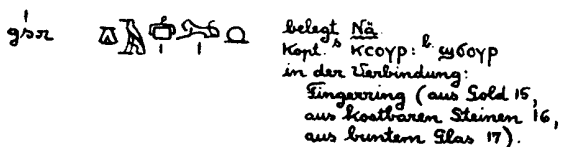 gśr belegt Nä
Kopt. ˢ ⲕⲥⲟⲩⲣ: ᵇ· ϣϭⲟⲩⲣ
in der Verbindung:
Fingerring (aus Gold 15,
aus kostbaren Steinen 16,
aus buntem Glas 17).